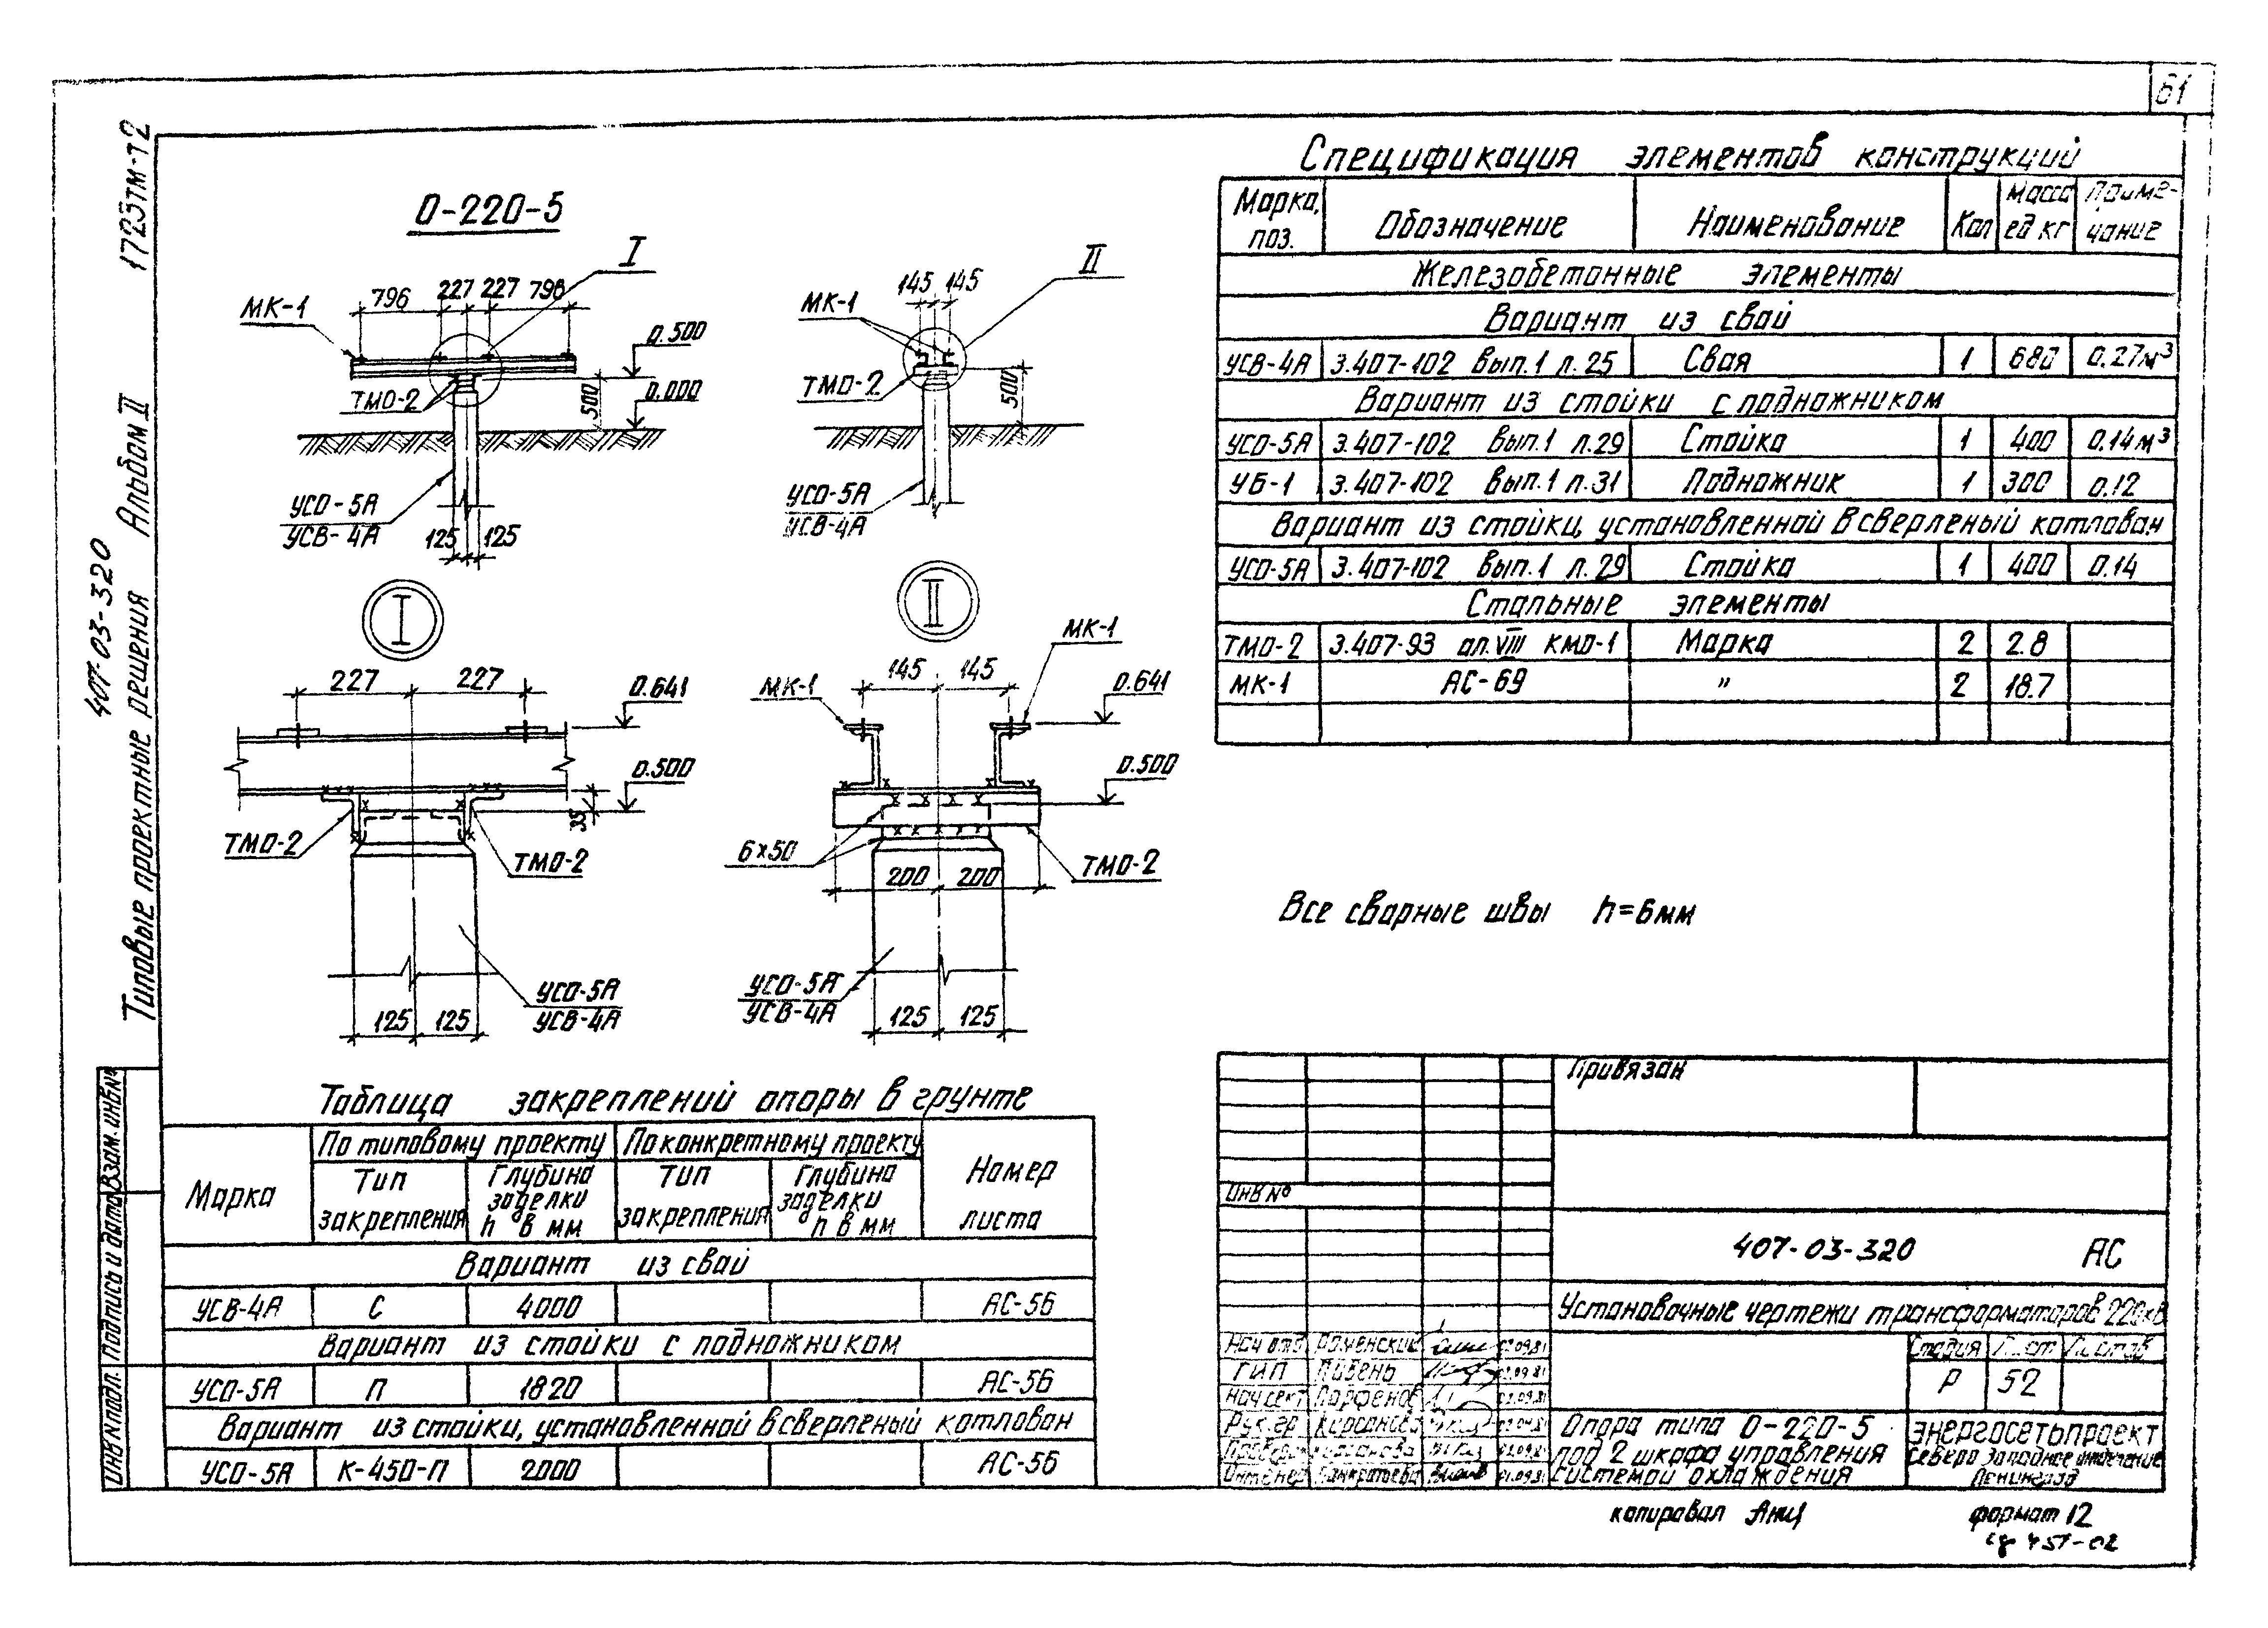 61
1725тм-т2
Альбом II
407-03-320
Типовые проектные решения
О-220-5
I
МК-1
796 227 227 796
0.500
0.000
500
ТМО-2
УСО-5А
УСВ-4А
125 125
II
145 145
МК-1
ТМО-2
500
УСО-5А
УСВ-4А
I
227 227
0.641
0.500
35
ТМО-2
ТМО-2
УСО-5А
УСВ-4А
125 125
II
МК-1
МК-1
145 145
0.641
0.500
6×50
200 200
ТМО-2
УСО-5А
УСВ-4А
125 125
Спецификация элементов конструкций
Марка, поз. Обозначение Наименование Кол Масса ед кг Приме-чание
Железобетонные элементы
Вариант из свай
УСВ-4А 3.407-102 вып.1 л.25 Свая 1 680 0.27м³
Вариант из стойки с подножником
УСО-5А 3.407-102 вып.1 л.29 Стойка 1 400 0.14м³
УБ-1 3.407-102 вып.1 л.31 Подножник 1 300 0.12
Вариант из стойки, установленной в сверленый котлован
УСО-5А 3.407-102 вып.1 л.29 Стойка 1 400 0.14
Стальные элементы
ТМО-2 3.407-93 ал.VIII КМО-1 Марка 2 2.8
МК-1 АС-69 " 2 18.7
Все сварные швы h=6мм
Таблица закреплений опоры в грунте
Марка По типовому проекту По конкретному проекту Номер листа
Тип закрепления Глубина заделки h в мм Тип закрепления Глубина заделки h в мм
Вариант из свай
УСВ-4А С 4000 АС-56
Вариант из стойки с подножником
УСО-5А П 1820 АС-56
Вариант из стойки, установленной в сверленый котлован
УСО-5А К-450-П 2000 АС-56
Инв N подл. Подпись и дата Взам. инв N°
Привязан
Инв N°
407-03-320 АС
Установочные чертежи трансформаторов 220кВ
Стадия Лист Листов
Р 52
Нач отд Роменский 09.81
ГИП Пивень 09.81
Нач сект Парфенов 09.81
Рук.гр
Инженер Панкратьева 09.81
Опора типа О-220-5
под 2 шкафа управления
системой охлаждения
Энергосетьпроект
Северо Западное отделение
Ленинград
копировал
формат 12